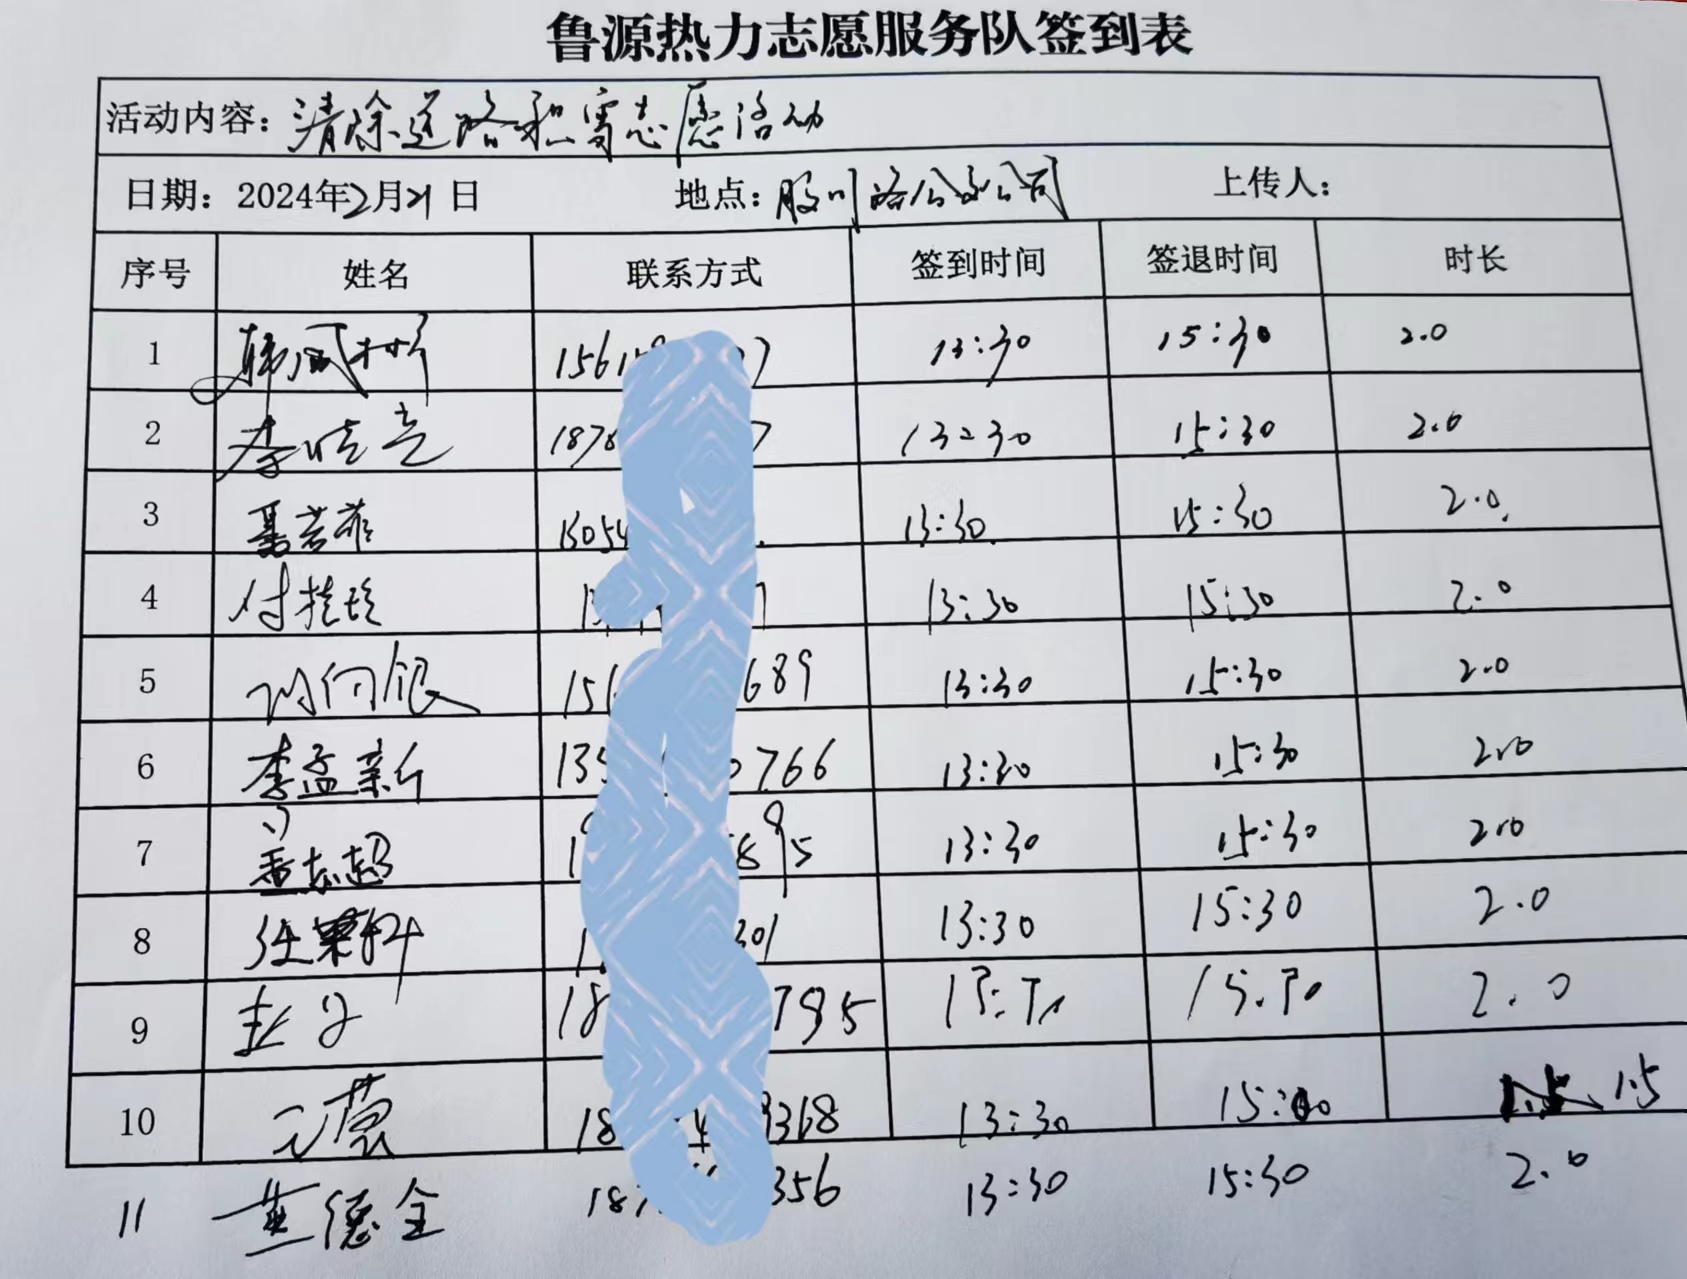 鲁源热力志愿服务队签到表
活动内容：清除道路积雪志愿活动
日期：2024年2月21日 地点：殷川路分公司 上传人：
序号 姓名 联系方式 签到时间 签退时间 时长
1 1561 7 13:30 15:30 2.0
2 李晓亮 1878 7 13:30 15:30 2.0
3 聂芸菲 13054 13:30 15:30 2.0
4 付桂玲 13 7 13:30 15:30 2.0
5 刘向银 156 689 13:30 15:30 2.0
6 李孟新 135 0766 13:30 15:30 2.0
7 孟志超 1 895 13:30 15:30 2.0
8 任 1 301 13:30 15:30 2.0
9 18 795 13:30 15:30 2.0
10 18 4 3368 13:30 15:00 1.5
11 黄德全 187 356 13:30 15:30 2.0